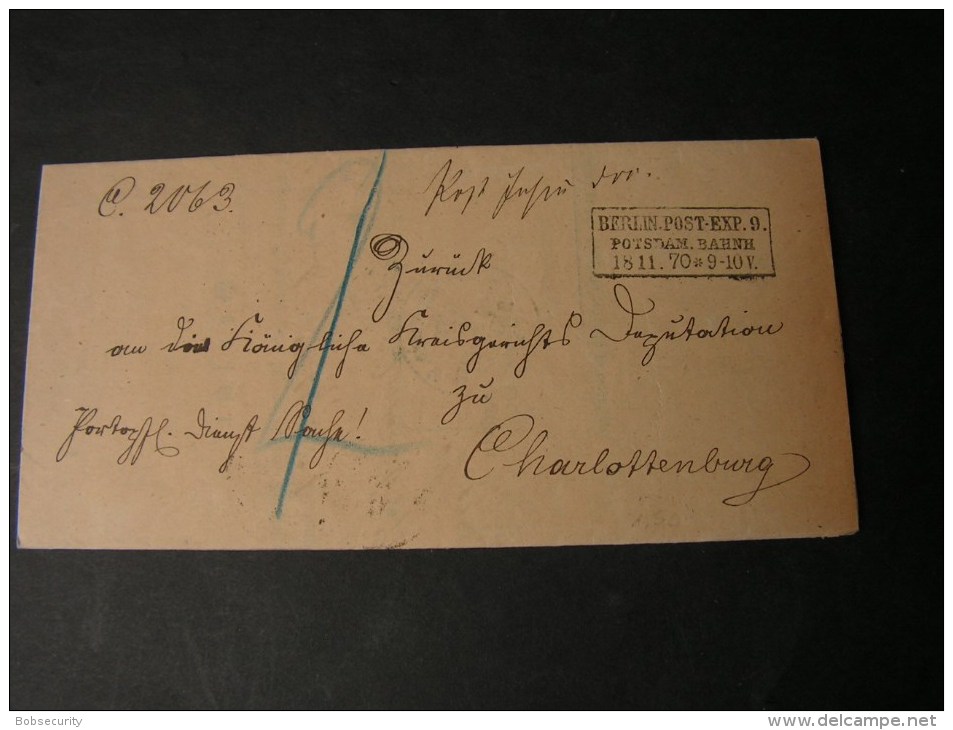 C. 2063.
Post
BERLIN.POST-EXP.9.
POTSDAM. BAHNH
18 11. 70 * 9-10 V.
Zurück
an die Königliche Kreisgerichts Deputation
zu
Portopfl. Dienst Sache!
Charlottenburg
Bobsecurity
delcampe.net